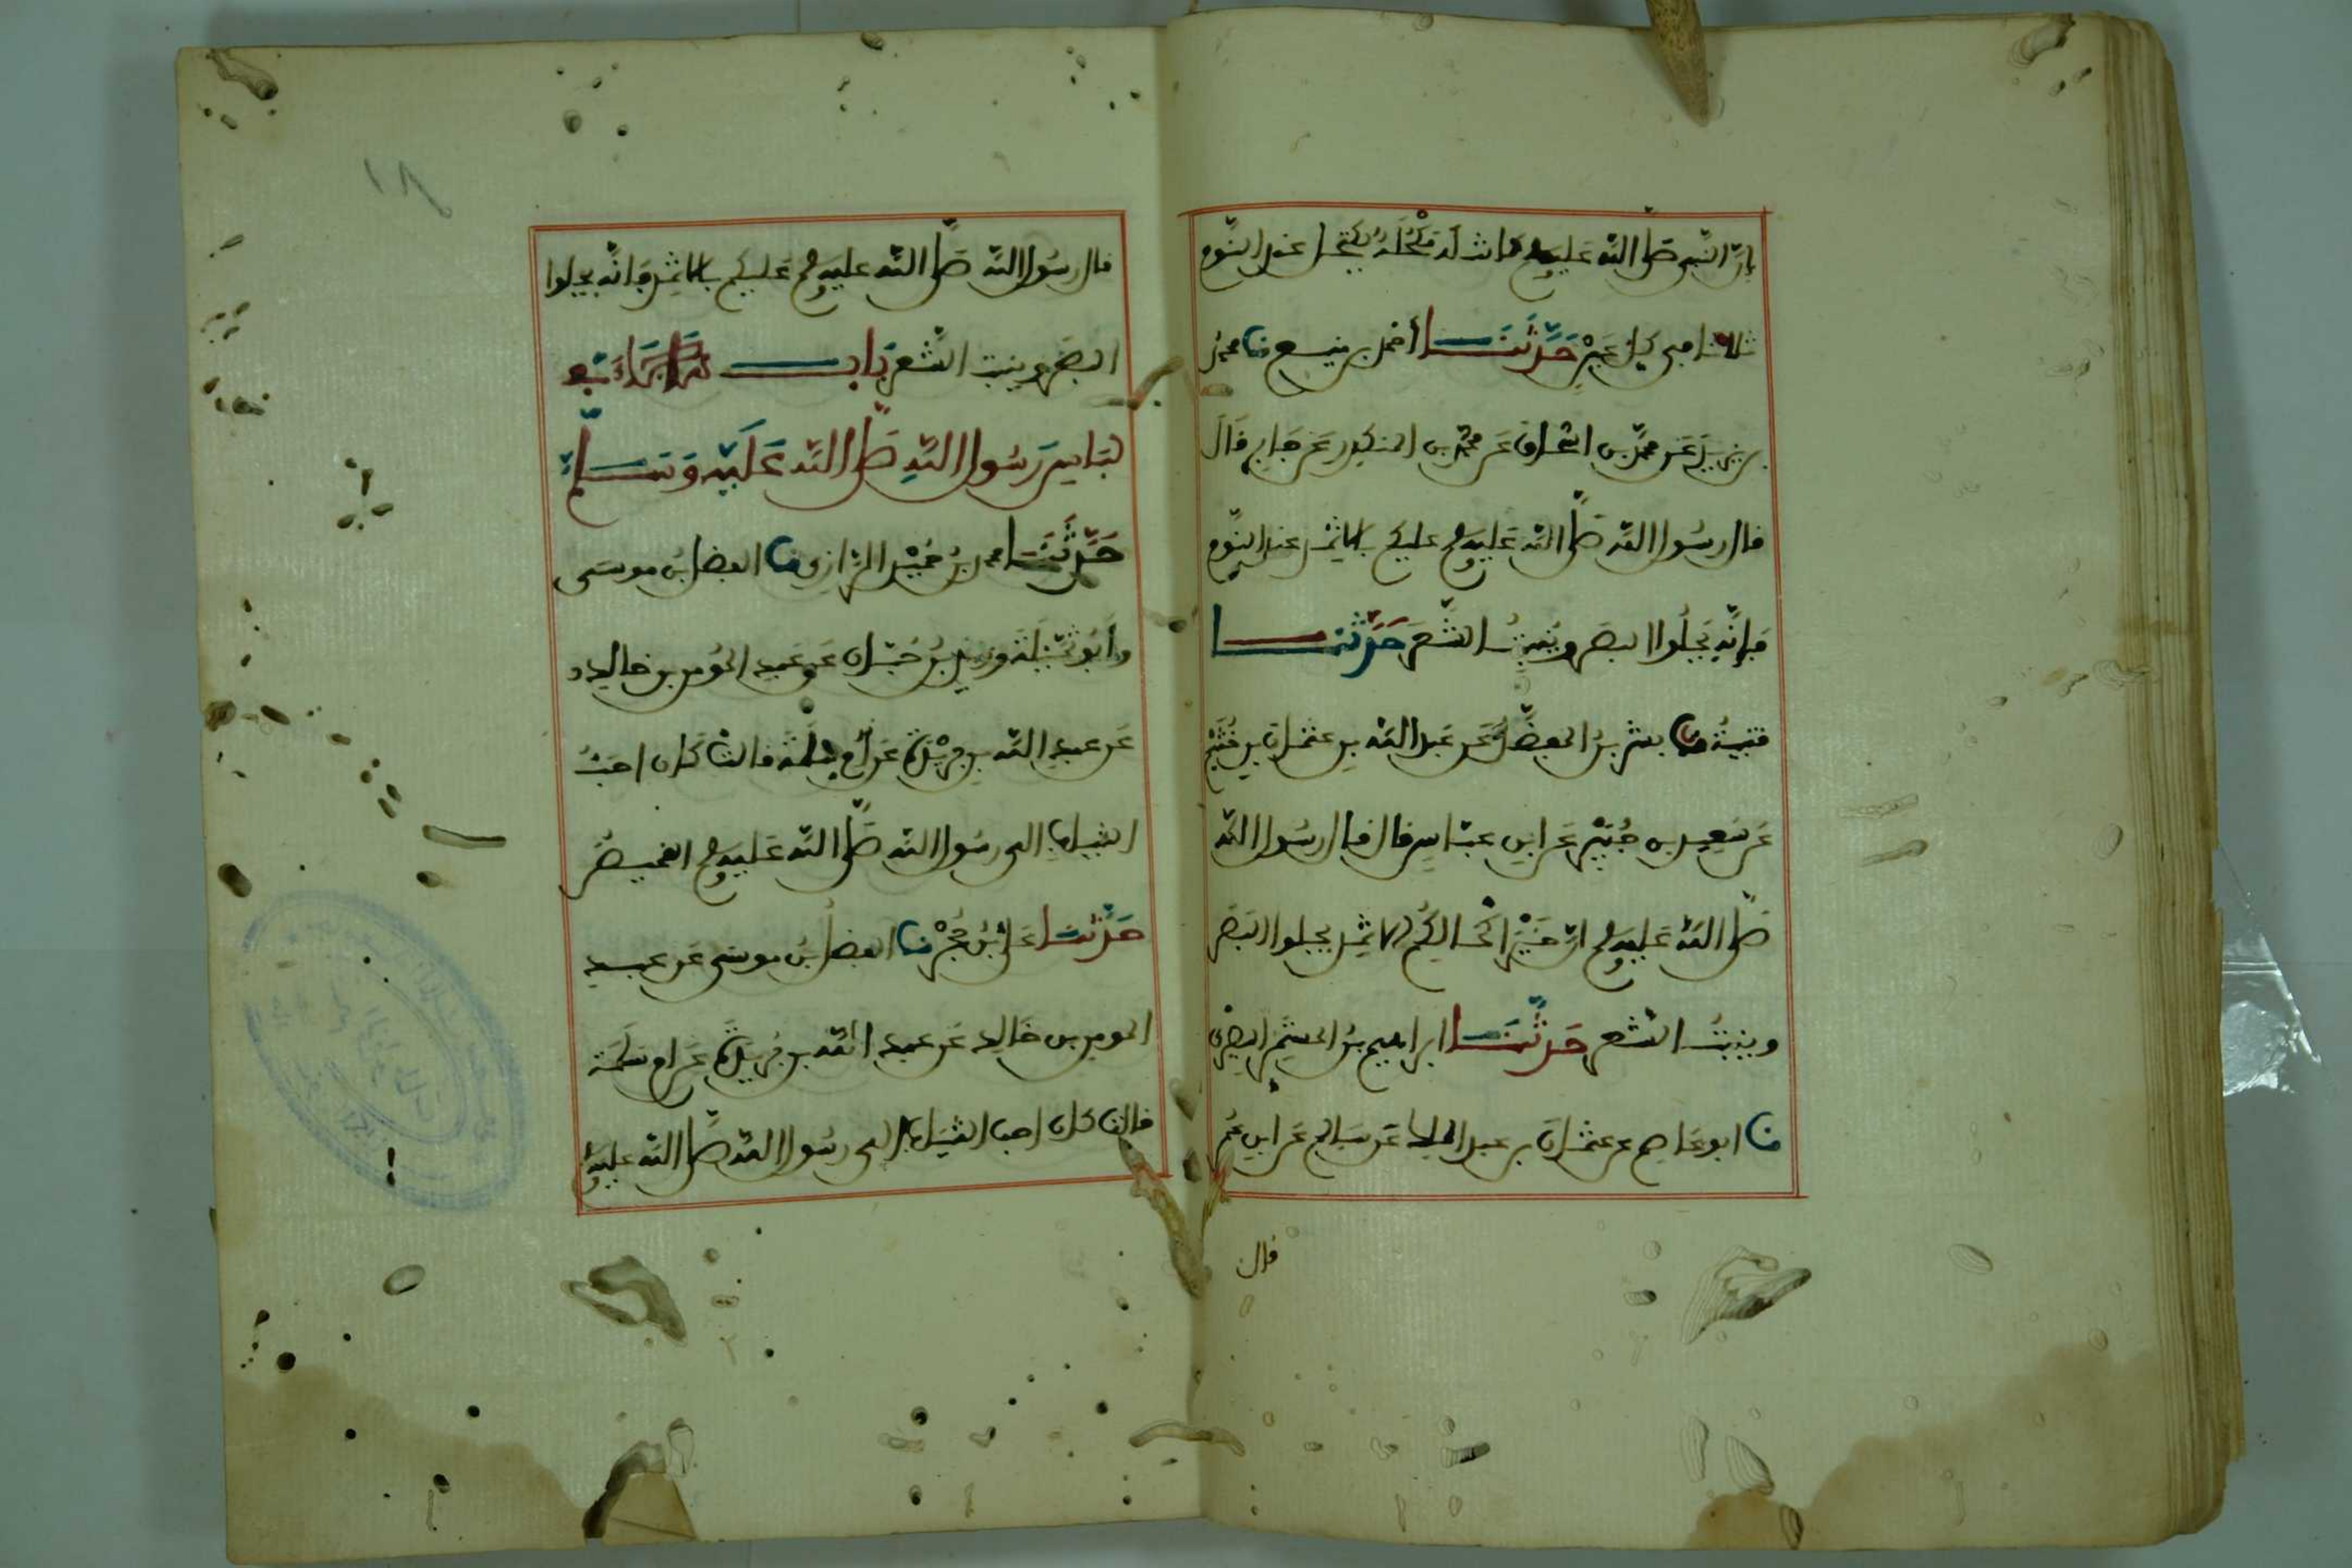 إنّ النّبي صَلَّى اللّه عَليه وسلم كانت له مُكْحُلَة يكتحل عند النّوم
ثلاثا في كل عَيْنٍ حَدَّثَنَا أحمد بن منيع نا محمدُ
بن يزيدَ عَن محمّد بن اسْحاق عَن محمّد بن المنكدِر عَن جَابرٍ قَالَ
قال رسُول اللّه صَلَّى اللّه عَليه وسلم عليكم بالاثمِد عند النوّم
فإنّه يَجلُوا البصَر ويُنبِتُ الشَّعَر حَدَّثَنَا
قتيبةُ نا بشر بنُ المفضَّل عَن عَبد اللّه بنِ عثمان بنِ خُثَيْم
عَن سَعِيد بن جُبَيْرٍ عَن ابنِ عبّاسٍ قال قال رسُول اللّه
صَلَّى اللّه عَليه وسلم انّ خَيْرَ اكْحالِكُم الاثمِد يجلوا البَصَر
وينبتُ الشّعر حَدَّثَنَا ابراهيم بنُ المستمِر البصْري
نا ابو عَاصِم عن عثمان بن عبد الملك عَن سَالم عَن ابنِ عُمر
قال
قال رسُول اللّه صَلَّى اللّه عليه وسلم عَليكم بالاثمِد فَانّه يجلوا
البصَر وينبت الشّعَر بَابُ مَا جَاءَ فِي
لبَاسِ رَسُول اللّهِ صَلَّى اللّه عَلَيْه وَسَلَّمَ
حَدَّثَنَا محمد بنُ حُمَيْدٍ الرّازي نا الفضل بنُ موسَى
وأبُو تُمَيْلَة وزيد بنُ حُبَاب عَن عَبد المُومن بن خالِد
عَن عبد اللّه بن بُرَيْدَة عَن أمّ سلَمَة قالتْ كَان احَبُّ
الثيابِ الى رسُول اللّه صَلَّى اللّه عَليه وسلم القميصُ
حَدَّثَنَا عَليّ بنُ حُجْرٍ نا الفضل بنُ موسَى عَن عبد
المومن بن خَالِد عَن عبد اللّه بن بُرَيْدَة عَن ام سَلَمَة
قالت كان احب الثيَاب الى رسُول اللّه صَلَّى اللّه عليه
١٨